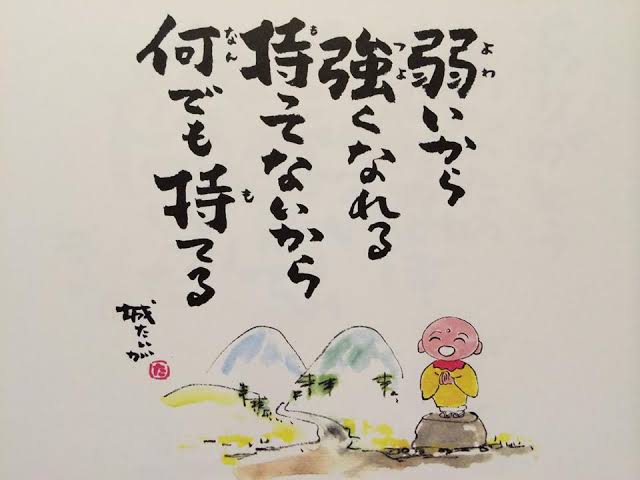 よわ
弱いから
つよ
強くなれる
も
持ってないから
なん も
何でも持てる
城たいが
た